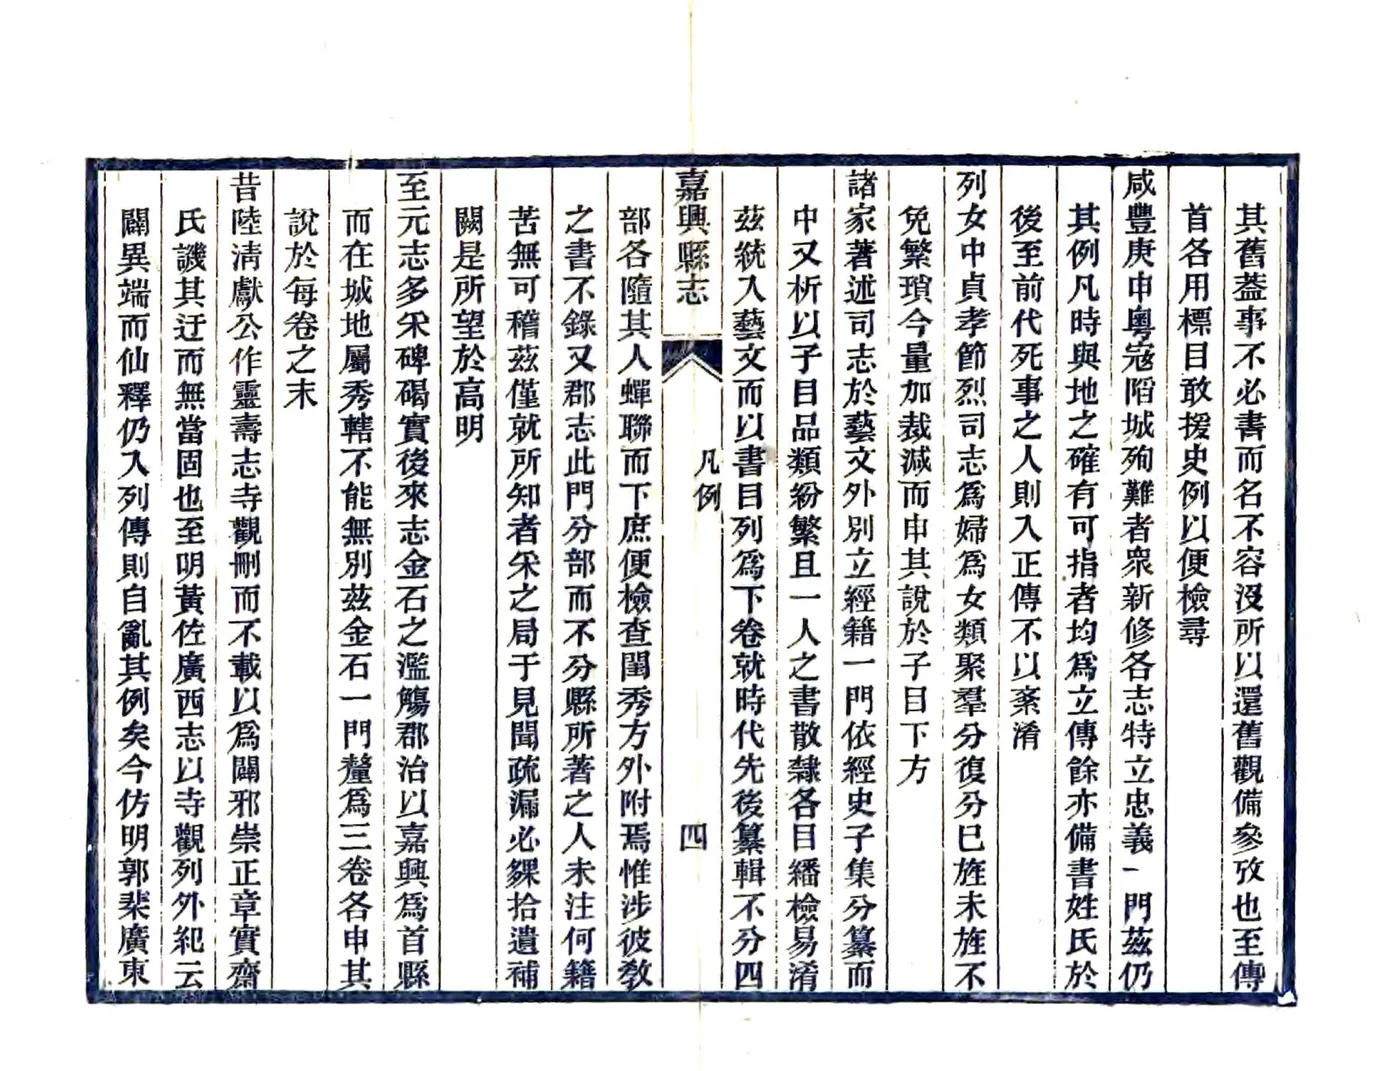 其舊葢事不必書而名不容沒所以還舊觀備參攷也至傳
首各用標目敢援史例以便檢尋
咸豐庚申粵寇陷城殉難者衆新修各志特立忠義一門茲仍
其例凡時與地之確有可指者均爲立傳餘亦備書姓氏於
後至前代死事之人則入正傳不以紊淆
列女中貞孝節烈司志爲婦爲女類聚羣分復分巳旌未旌不
免繁瑣今量加裁減而申其說於子目下方
諸家著述司志於藝文外別立經籍一門依經史子集分纂而
中又析以子目品類紛繁且一人之書散隸各目繙檢易淆
茲統入藝文而以書目列爲下卷就時代先後纂輯不分四
嘉興縣志
凡例
四
部各隨其人蟬聯而下庶便檢查閨秀方外附焉惟涉彼敎
之書不錄又郡志此門分部而不分縣所著之人未注何籍
苦無可稽茲僅就所知者采之局于見聞疏漏必夥拾遺補
闕是所望於高明
至元志多采碑碣實後來志金石之濫觴郡治以嘉興爲首縣
而在城地屬秀轄不能無別茲金石一門釐爲三卷各申其
說於每卷之末
昔陸淸獻公作靈壽志寺觀刪而不載以爲闢邪崇正章實齋
氏譏其迂而無當固也至明黃佐廣西志以寺觀列外紀云
闢異端而仙釋仍入列傳則自亂其例矣今仿明郭棐廣東